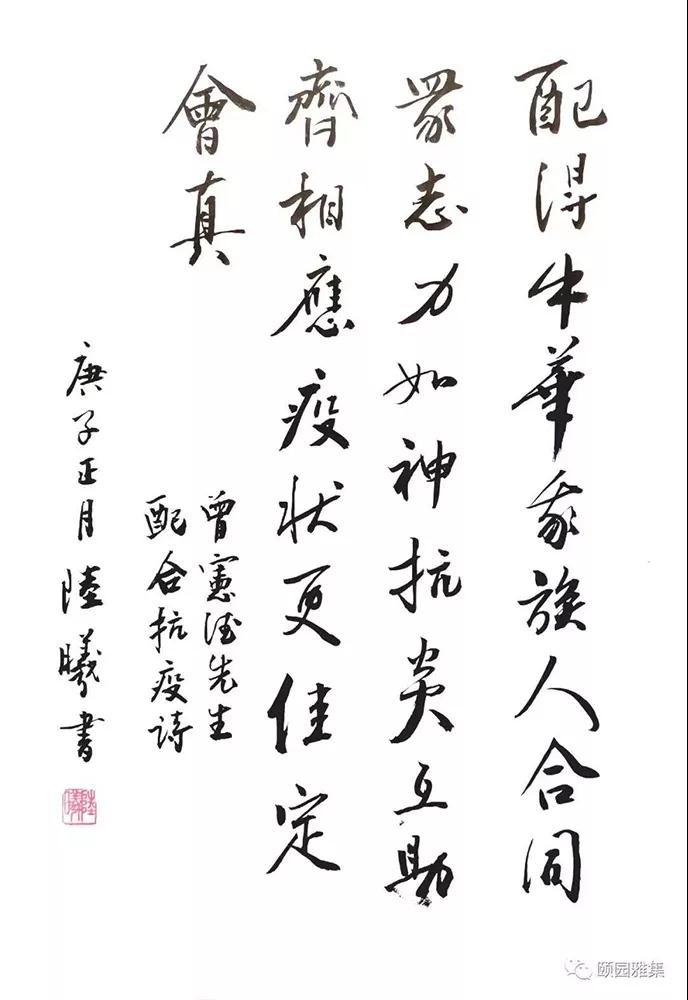 配得中華家族人合同
眾志力如神抗炎互助
齊相應疫状更佳定
會真
曾憲先生
配合抗疫詩
庚子正月陸曦書
陸曦
颐园雅集